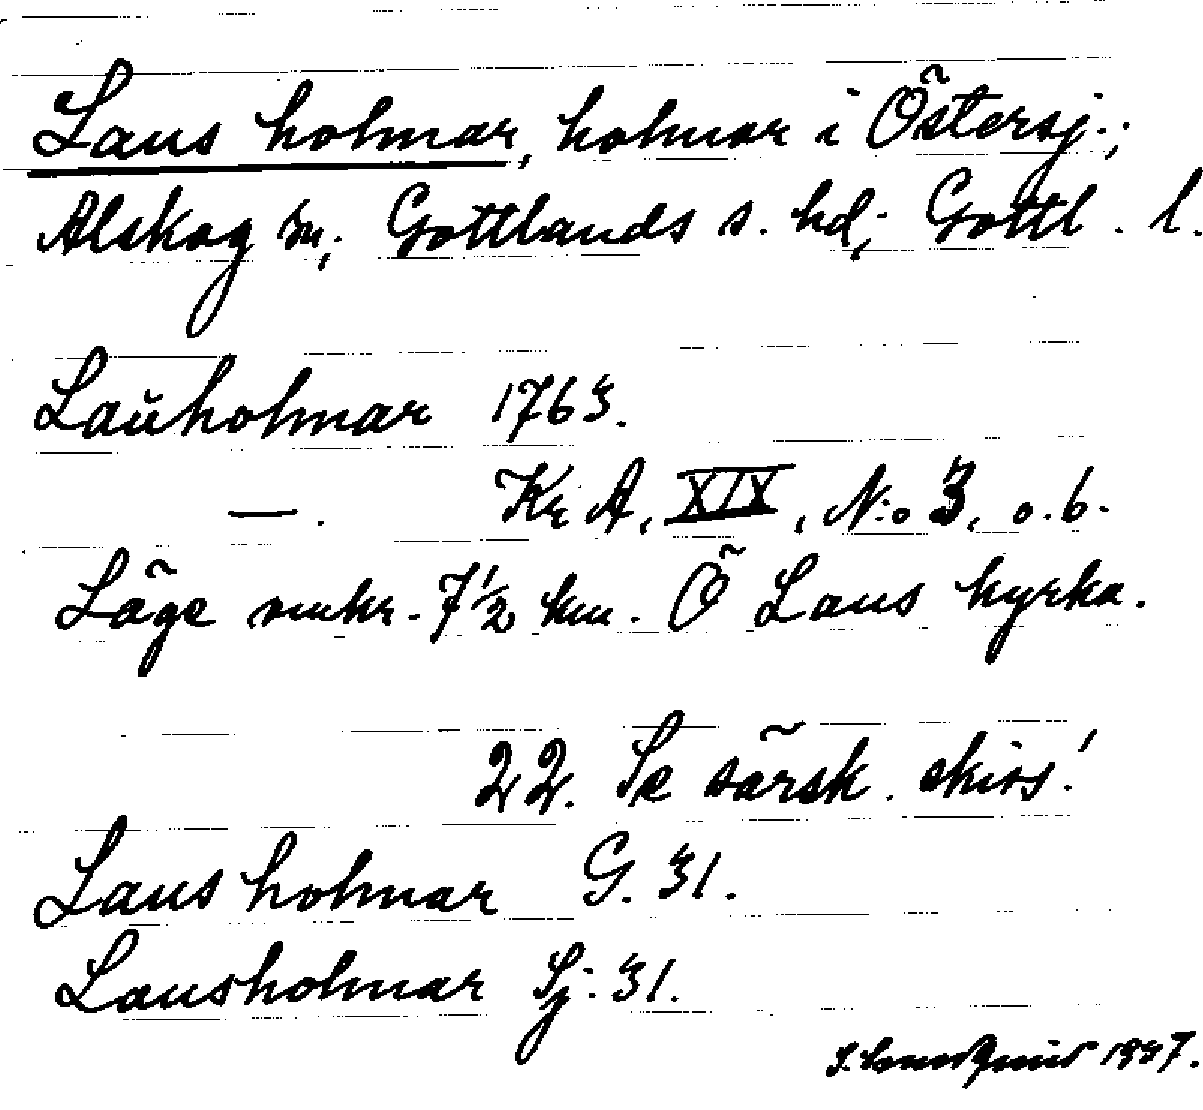 Laus holmar, holmar i Östersj.;
Alskog sn; Gottlands s. hd; Gottl. l.
Lauholmar 1763.
—. Kr A, XIX, N:o 3, o.b.
Läge omkr. 7 1/2 km. Ö Laus kyrka.
22. Se särsk. skiss!
Laus holmar G. 31.
Lausholmar Sj: 31.
1937.